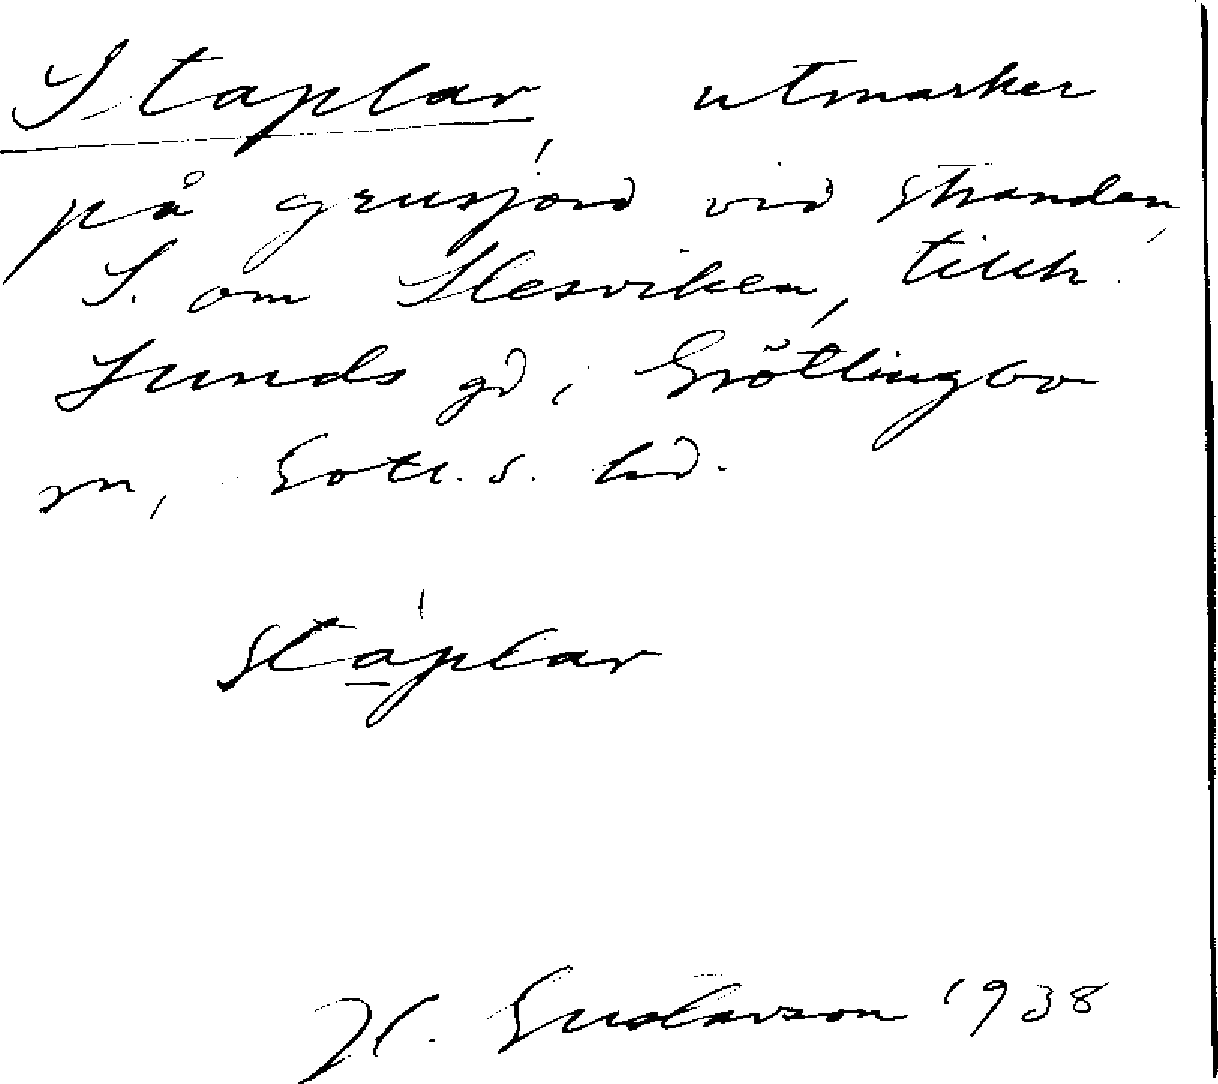 Staplar, utmarker
på grusjord vid stranden,
S. om Slesviken, tillh.
Lunds gd, i Grötlingbo
sn, Gotl. s. hd.
staplar
H. Gustavson 1938